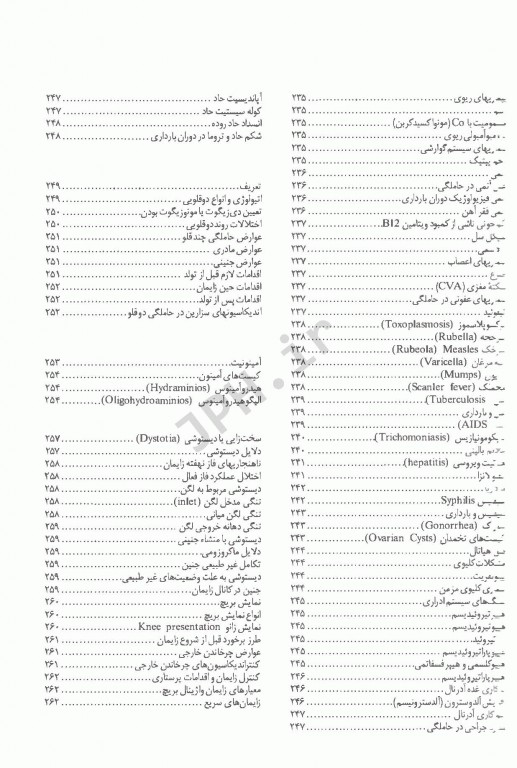 ریهای ریوی ۲۳۵
۲۳۵
سمومیت با Co (مونواکسیدکربن) ۲۳۵
آمبولی ریوی ۲۳۵
ریهای سیستم گوارشی ۲۳۵
پپتیک ۲۳۵
۲۳۶
در حاملگی ۲۳۶
فیزیولوژیک دوران بارداری ۲۳۶
فقر آهن ۲۳۶
خونی ناشی از کمبود ویتامین B12 ۲۳۷
سل ۲۳۷
۲۳۷
ریهای اعصاب ۲۳۷
صرع ۲۳۷
سکته مغزی (CVA) ۲۳۷
ریهای عفونی در حاملگی ۲۳۷
۲۳۷
توکسوپلاسموز (Toxoplasmosis) ۲۳۸
سرخجه (Rubella) ۲۳۸
سرخک Rubeola) Measles) ۲۳۸
مرغان (Varicella) ۲۳۸
(Mumps) ۲۳۸
مخملک (Scarler fever) ۲۳۸
Tuberculosis) ۲۳۹
و بارداری ۲۳۹
AIDS) ۲۳۹
تریکومونیازیس (Trichomoniasis) ۲۴۰
علائم بالینی ۲۴۰
هپاتیت ویروسی (hepatitis) ۲۴۱
آنفلوانزا ۲۴۱
۲۴۲
سیفیلیس Syphilis ۲۴۲
سیفیلیس و بارداری ۲۴۳
سوزاک (Gonorrhea) ۲۴۳
کیست‌های تخمدان (Ovarian Cysts) ۲۴۳
هیاتال ۲۴۴
مشکلات کلیوی ۲۴۴
پیلونفریت ۲۴۴
کلیوی مزمن ۲۴۴
سنگ‌های سیستم ادراری ۲۴۵
هیپرتیروئیدیسم ۲۴۵
هیپوتیروئیدیسم ۲۴۵
تیروئید ۲۴۵
هیپوپاراتیروئیدیسم ۲۴۵
هیپوکلسمی و هیپرفسفاتمی ۲۴۵
هیپرپاراتیروئیدیسم ۲۴۶
کاری غده آدرنال ۲۴۶
یش آلدوسترون (آلدسترونیسم) ۲۴۶
کاری آدرنال ۲۴۷
جراحی در حاملگی ۲۴۷
آپاندیسیت حاد ۲۴۷
کوله سیستیت حاد ۲۴۷
انسداد حاد روده ۲۴۸
شکم حاد و تروما در دوران بارداری ۲۴۸
تعریف ۲۴۹
اتیولوژی و انواع دوقلویی ۲۴۹
تعیین دی‌زیگوت یا مونوزیگوت بودن ۲۵۰
اختلالات روند دوقلویی ۲۵۰
عوارض حاملگی چند قلو ۲۵۱
عوارض مادری ۲۵۱
عوارض جنینی ۲۵۱
اقدامات لازم قبل از تولد ۲۵۱
اقدامات حین زایمان ۲۵۲
اقدامات پس از تولد ۲۵۲
اندیکاسیونهای سزارین در حاملگی دوقلو ۲۵۲
آمنیونیت ۲۵۳
کیست‌های آمنیون ۲۵۴
هیدروآمنیوس (Hydraminios) ۲۵۴
الیگوهیدروآمنیوس (Oligohydroaminios) ۲۵۴
سخت‌زایی یا دیستوشی (Dystotia) ۲۵۷
دلایل دیستوشی ۲۵۷
ناهنجاریهای فاز نهفته زایمان ۲۵۸
اختلال عملکرد فاز فعال ۲۵۸
دیستوشی مربوط به لگن ۲۵۸
تنگی مدخل لگن (inlet) ۲۵۸
تنگی لگن میانی ۲۵۸
تنگی دهانه خروجی لگن ۲۵۹
دیستوشی با منشاء جنینی ۲۵۹
دلایل ماکروزومی ۲۵۹
تکامل غیر طبیعی جنین ۲۵۹
دیستوشی به علت وضعیت‌های غیر طبیعی ۲۵۹
جنین در کانال زایمان ۲۵۹
نمایش بریچ ۲۶۰
انواع نمایش بریچ ۲۶۰
نمایش زانو Knee presentation ۲۶۰
طرز برخورد قبل از شروع زایمان ۲۶۱
عوارض چرخاندن خارجی ۲۶۱
کنتراندیکاسیون‌های چرخاندن خارجی ۲۶۱
کنترل زایمان و اقدامات پرستاری ۲۶۲
معیارهای زایمان واژینال بریچ ۲۶۲
زایمان‌های سریع ۲۶۲
JPH.ir